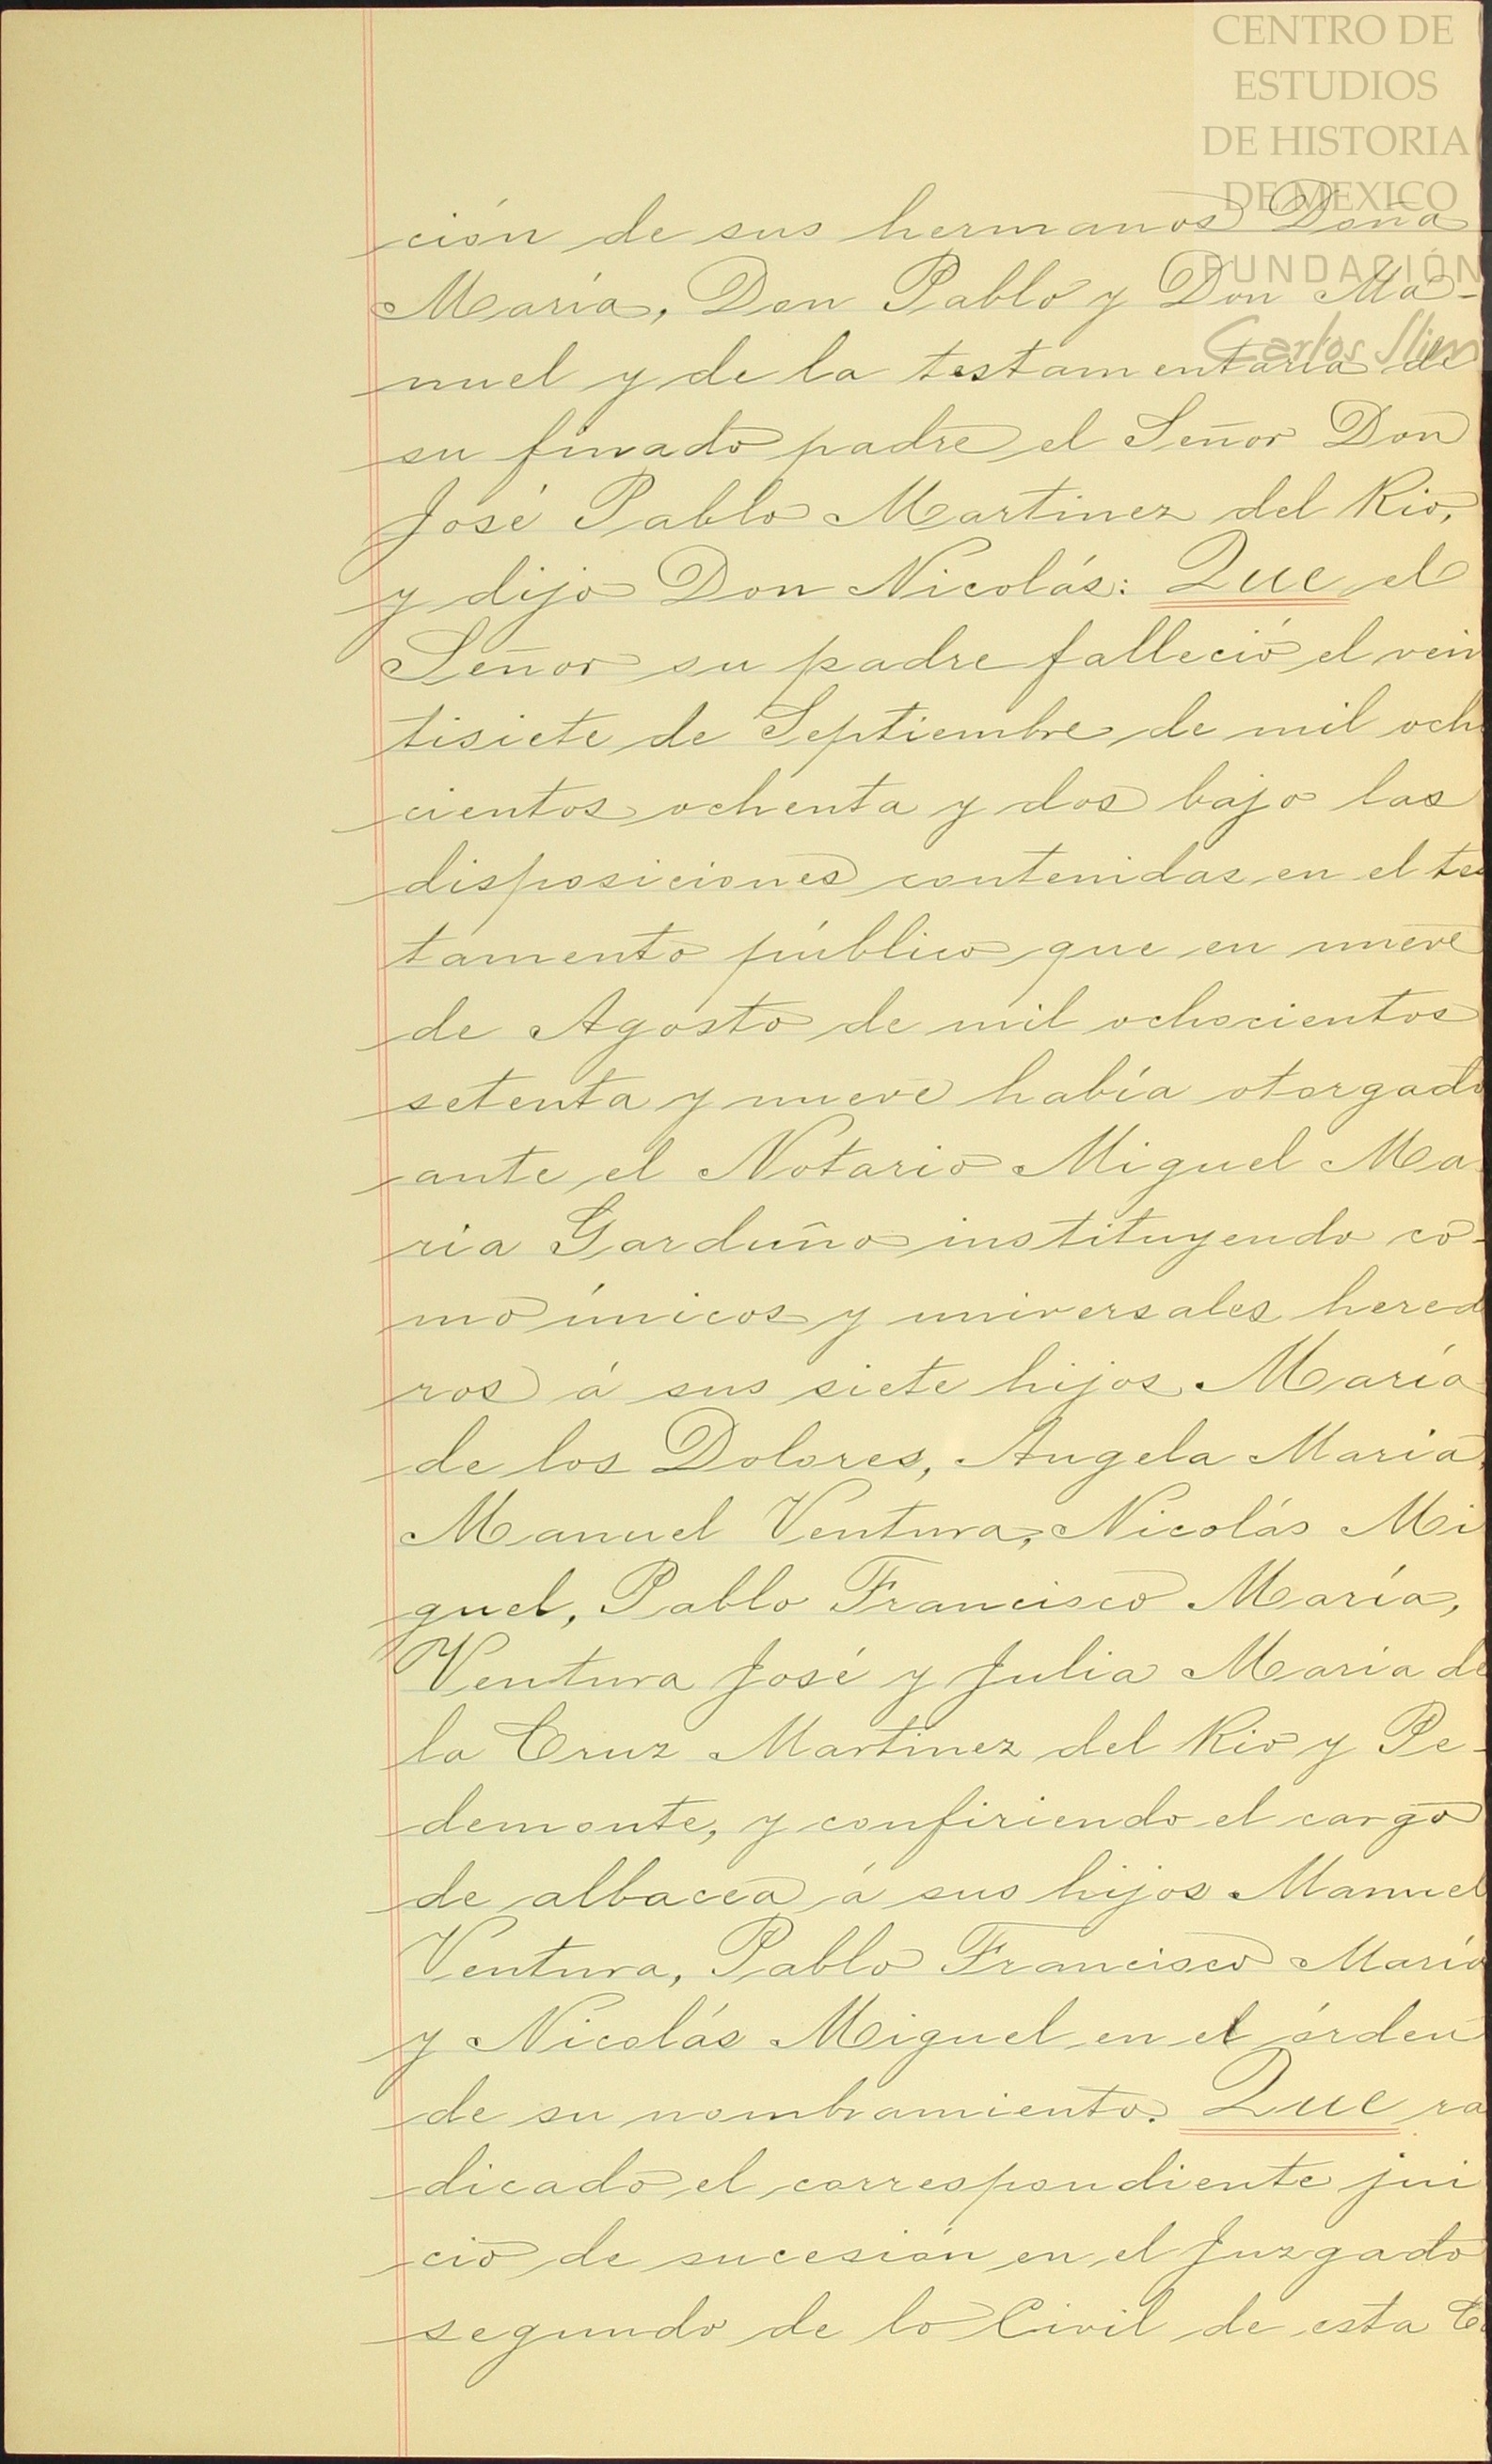 CENTRO DE
ESTUDIOS
DE HISTORIA
DE MEXICO
FUNDACIÓN
Carlos Slim
ción de sus hermanos Doña
María, Don Pablo y Don Ma-
nuel y de la testamentaria de
su finado padre el Señor Don
José Pablo Martinez del Rio,
y dijo Don Nicolás: Que el
Señor su padre falleció el vein
tisiete de Septiembre de mil och
cientos ochenta y dos bajo las
disposiciones contenidas en el tes
tamento público que en nueve
de Agosto de mil ochocientos
setenta y nueve había otorgado
ante el Notario Miguel Ma
ria Garduño instituyendo co-
mo únicos y universales hered
ros á sus siete hijos María
de los Dolores, Angela Maria,
Manuel Ventura, Nicolás Mi
guel, Pablo Francisco María,
Ventura José y Julia Maria de
la Cruz Martinez del Rio y Pe-
demonte, y confiriendo el cargo
de albacea á sus hijos Manuel
Ventura, Pablo Francisco María
y Nicolás Miguel en el órden
de su nombramiento. Que ra
dicado el correspondiente jui
cio de sucesión en el Juzgado
segundo de lo Civil de esta